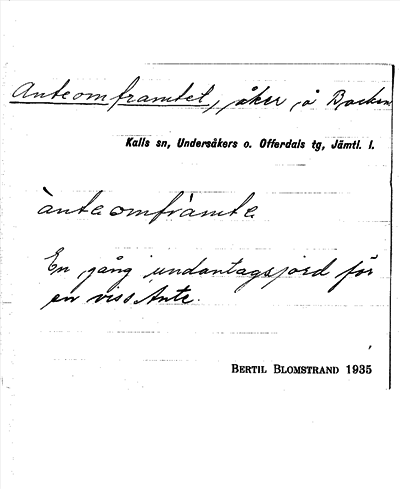 Anteomframtet, åker å Backen
Kalls sn, Undersåkers o. Offerdals tg, Jämtl. l.
ànteomfràmte
En gång undantagsjord för
en viss Ante.
BERTIL BLOMSTRAND 1935